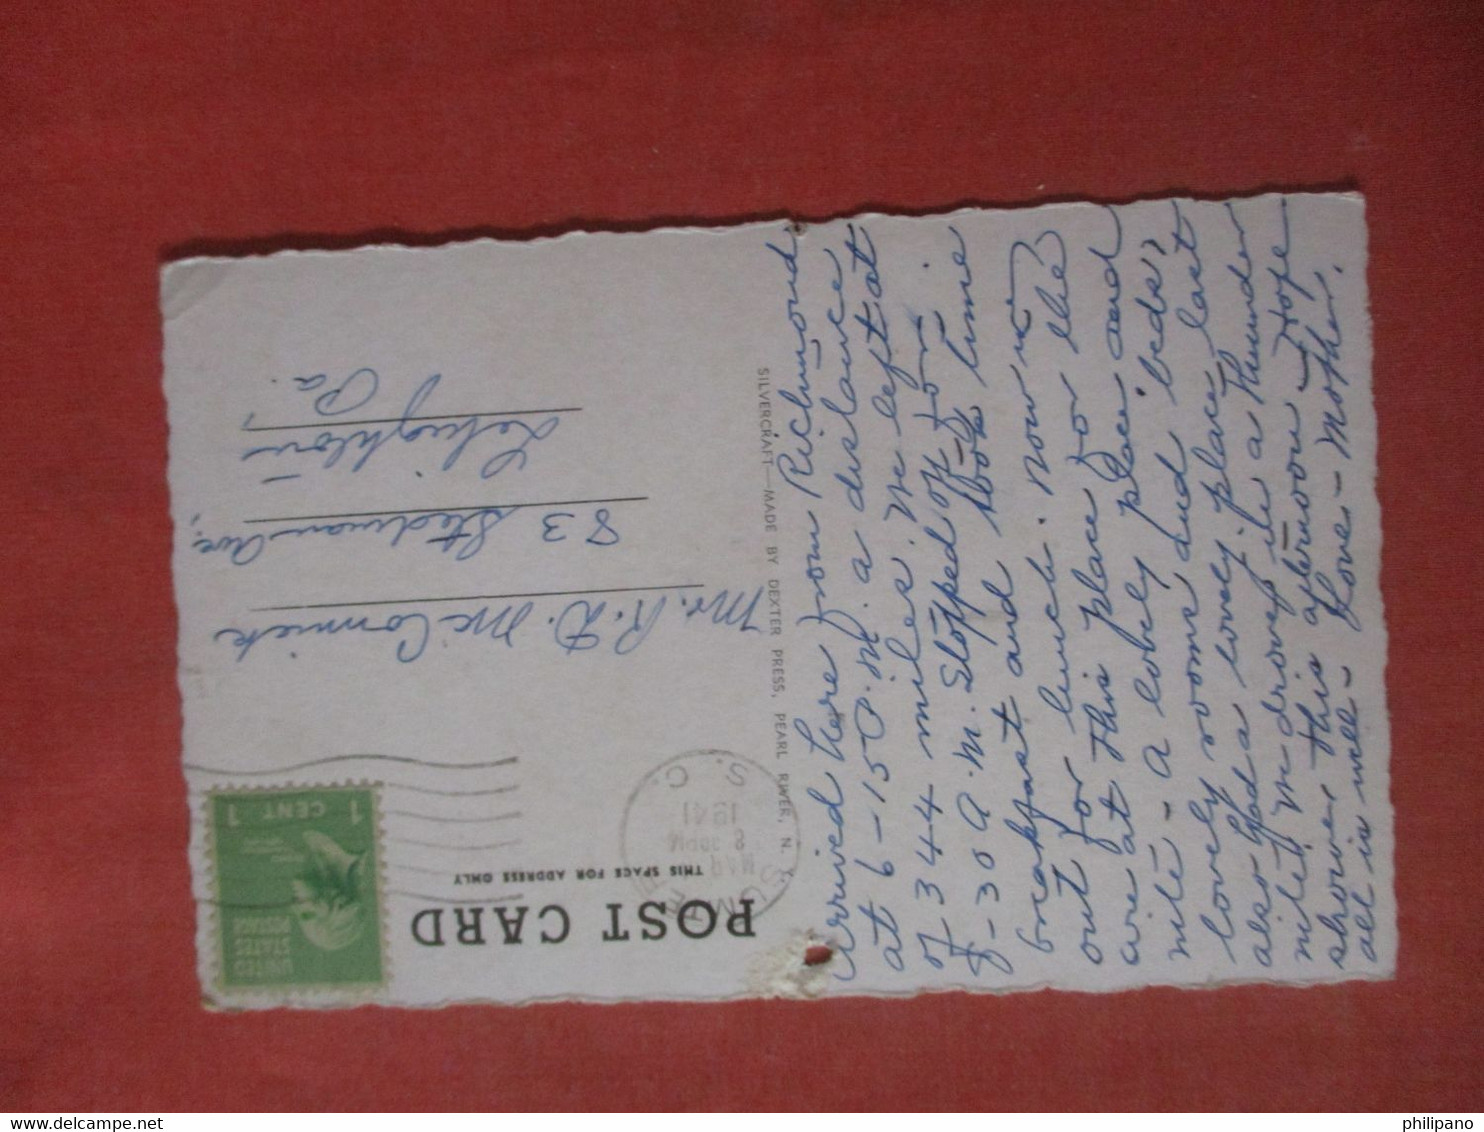 Arrived here from Richmond
at 6-15 P.M. a distance
of 344 miles. We left at
8-30 A.M. Stopped off for
breakfast and took time
out for lunch. Now in
are at this place for the
nite - a lovely place and
lovely rooms and beds,
also had a lovely place last
nite. We drove in a thunder
shower this afternoon. Hope
all is well - Love - Mother.
POST CARD
THIS SPACE FOR ADDRESS ONLY
SUMTER
MAR
8 30 PM
1941
S. C.
1 CENT 1
UNITED
STATES
POSTAGE
Mr. R. D. McCormick
83 Stedman Ave.,
Lehighton,
Pa.
SILVERCRAFT—MADE BY DEXTER PRESS, PEARL RIVER, N. Y.
philipano
delcampe.net